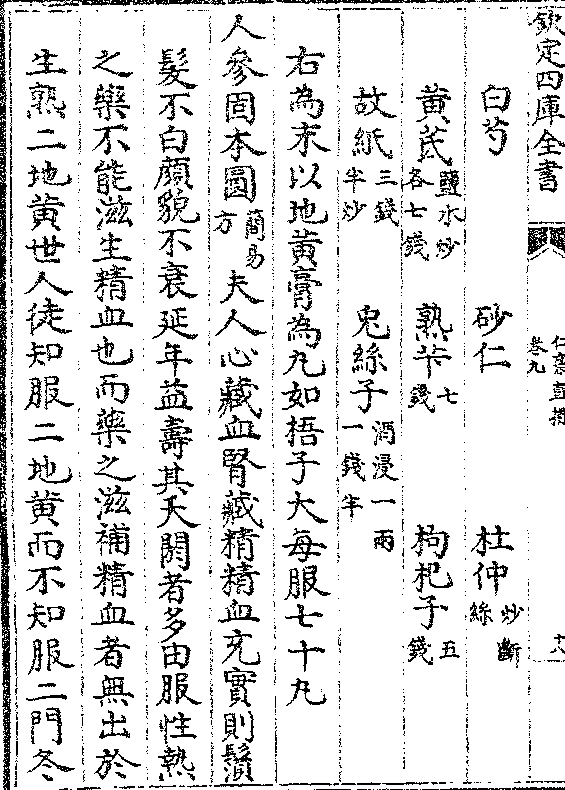 欽定四庫全書
仁齋直指
卷九
十八
白芍 砂仁 杜仲炒斷絲
黃芪鹽水炒各七錢 熟苄七錢 枸杞子五錢
故紙三錢半炒 兎絲子酒浸一兩一錢半
右為末以地黃膏為丸如梧子大每服七十丸
人參固本圓簡易方 夫人心藏血腎藏精精血充實則鬚
髮不白顔貌不衰延年益壽其夭閼者多由服性熱
之藥不能滋生精血也而藥之滋補精血者無出於
生熟二地黃世人徒知服二地黃而不知服二門冬